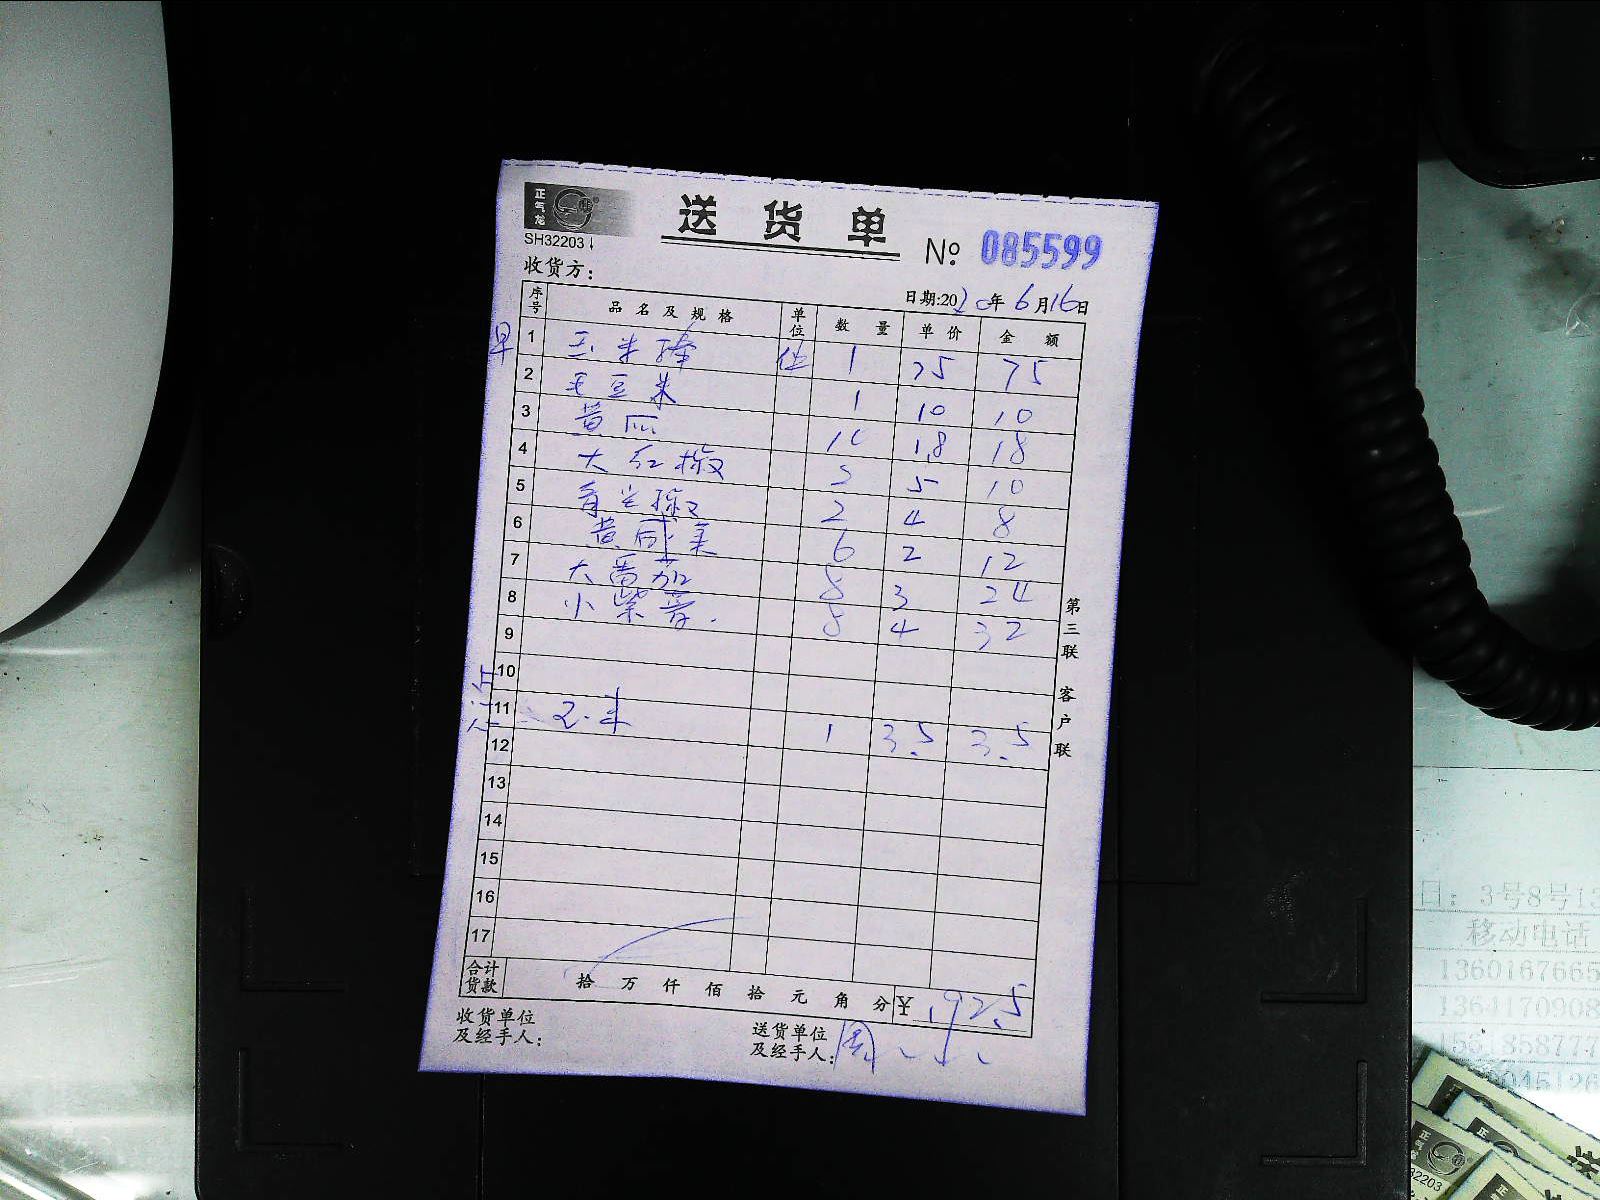 正气龙
SH32203↓
送货单
№ 085599
收货方：
日期:2020年6月16日
序号 品名及规格 单位 数量 单价 金额
早 1 玉米棒 1 75 75
2 毛豆米 1 10 10
3 黄瓜 10 1.8 18
4 大红椒 2 5 10
5 青尖椒 2 4 8
6 黄咸菜 6 2 12
7 大番茄 8 3 24
8 小紫薯. 8 4 32
9
10
点心 11 玉米 1 3.5 3.5
12
13
14
15
16
17
合计货款 拾 万 仟 佰 拾 元 角 分 ¥ 192.5
收货单位及经手人：
送货单位及经手人：周
第三联 客户联
日: 3号8号13
移动电话
1360167665
1364170908
正气龙
32203
送